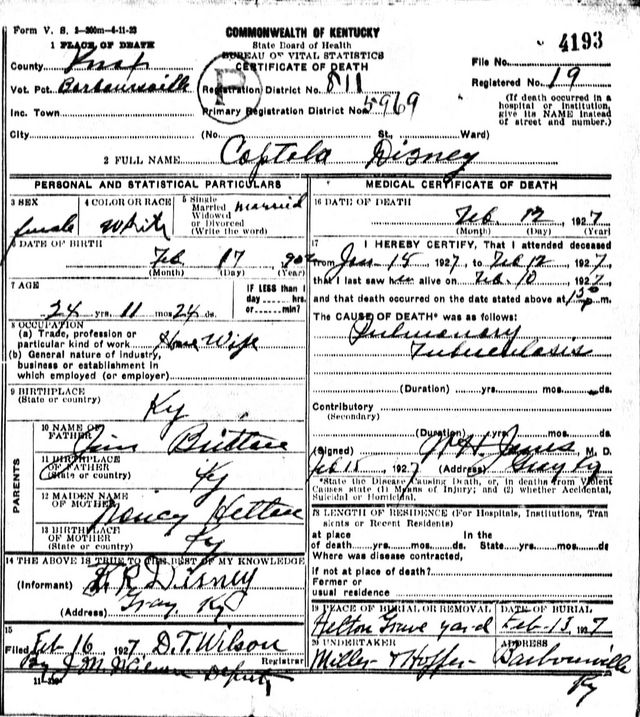 Form V. S. 1-200m-4-11-23
COMMONWEALTH OF KENTUCKY
State Board of Health
BUREAU OF VITAL STATISTICS
CERTIFICATE OF DEATH
4193
1 PLACE OF DEATH
County Knox
File No.
Vot. Pct. Barbourville
Registration District No. 811
Registered No. 19
Inc. Town
Primary Registration District No. 5969
(If death occurred in a hospital or institution, give its NAME instead of street and number.)
City (No St., Ward)
2 FULL NAME Coptola Disney
PERSONAL AND STATISTICAL PARTICULARS
3 SEX female
4 COLOR OR RACE White
5 Single Married Widowed or Divorced (Write the word) married
6 DATE OF BIRTH
Feb 17 902
(Month) (Day) (Year)
7 AGE
24 yrs. 11 mos. 24 ds.
IF LESS than 1 day hrs. or min?
8 OCCUPATION
(a) Trade, profession or particular kind of work House Wife
(b) General nature of industry, business or establishment in which employed (or employer)
9 BIRTHPLACE
(State or country) Ky
PARENTS
10 NAME OF FATHER Jim
11 BIRTHPLACE OF FATHER
(State or country) Ky
12 MAIDEN NAME OF MOTHER Nancy
13 BIRTHPLACE OF MOTHER
(State or country) Ky
14 THE ABOVE IS TRUE TO THE BEST OF MY KNOWLEDGE
(Informant) Disney
(Address) Gray Ky
15
Filed Feb 16 1927 D.T. Wilson
Registrar
By J M Wilson Deputy
MEDICAL CERTIFICATE OF DEATH
16 DATE OF DEATH
Feb 12 1927
(Month) (Day) (Year)
17 I HEREBY CERTIFY, That I attended deceased
from Jan 15 1927 to Feb 12, 1927
that I last saw her alive on Feb 10, 1927
and that death occurred on the date stated above at m.
The CAUSE OF DEATH* was as follows:
Pulmonary
Tuberculosis
(Duration) yrs. mos. ds.
Contributory
(Secondary)
(Duration) yrs. mos. ds.
(Signed) M. D.
Feb 15, 1927 (Address) Gray Ky
*State the Disease Causing Death, or, in deaths from Violent Causes state (1) Means of Injury; and (2) whether Accidental, Suicidal or Homicidal.
18 LENGTH OF RESIDENCE (For Hospitals, Institutions, Transients or Recent Residents)
At place of death yrs. mos. ds. In the State yrs. mos. ds.
Where was disease contracted,
if not at place of death?
Former or
usual residence
19 PLACE OF BURIAL OR REMOVAL
Helton Grave yard
DATE OF BURIAL
Feb-13 1927
20 UNDERTAKER
Miller
ADDRESS
Barbourville
Ky